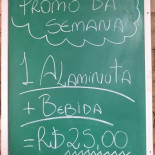 PROMO DA
SEMANA
1 ALAMINUTA
+ BEBIDA
= R$25,00